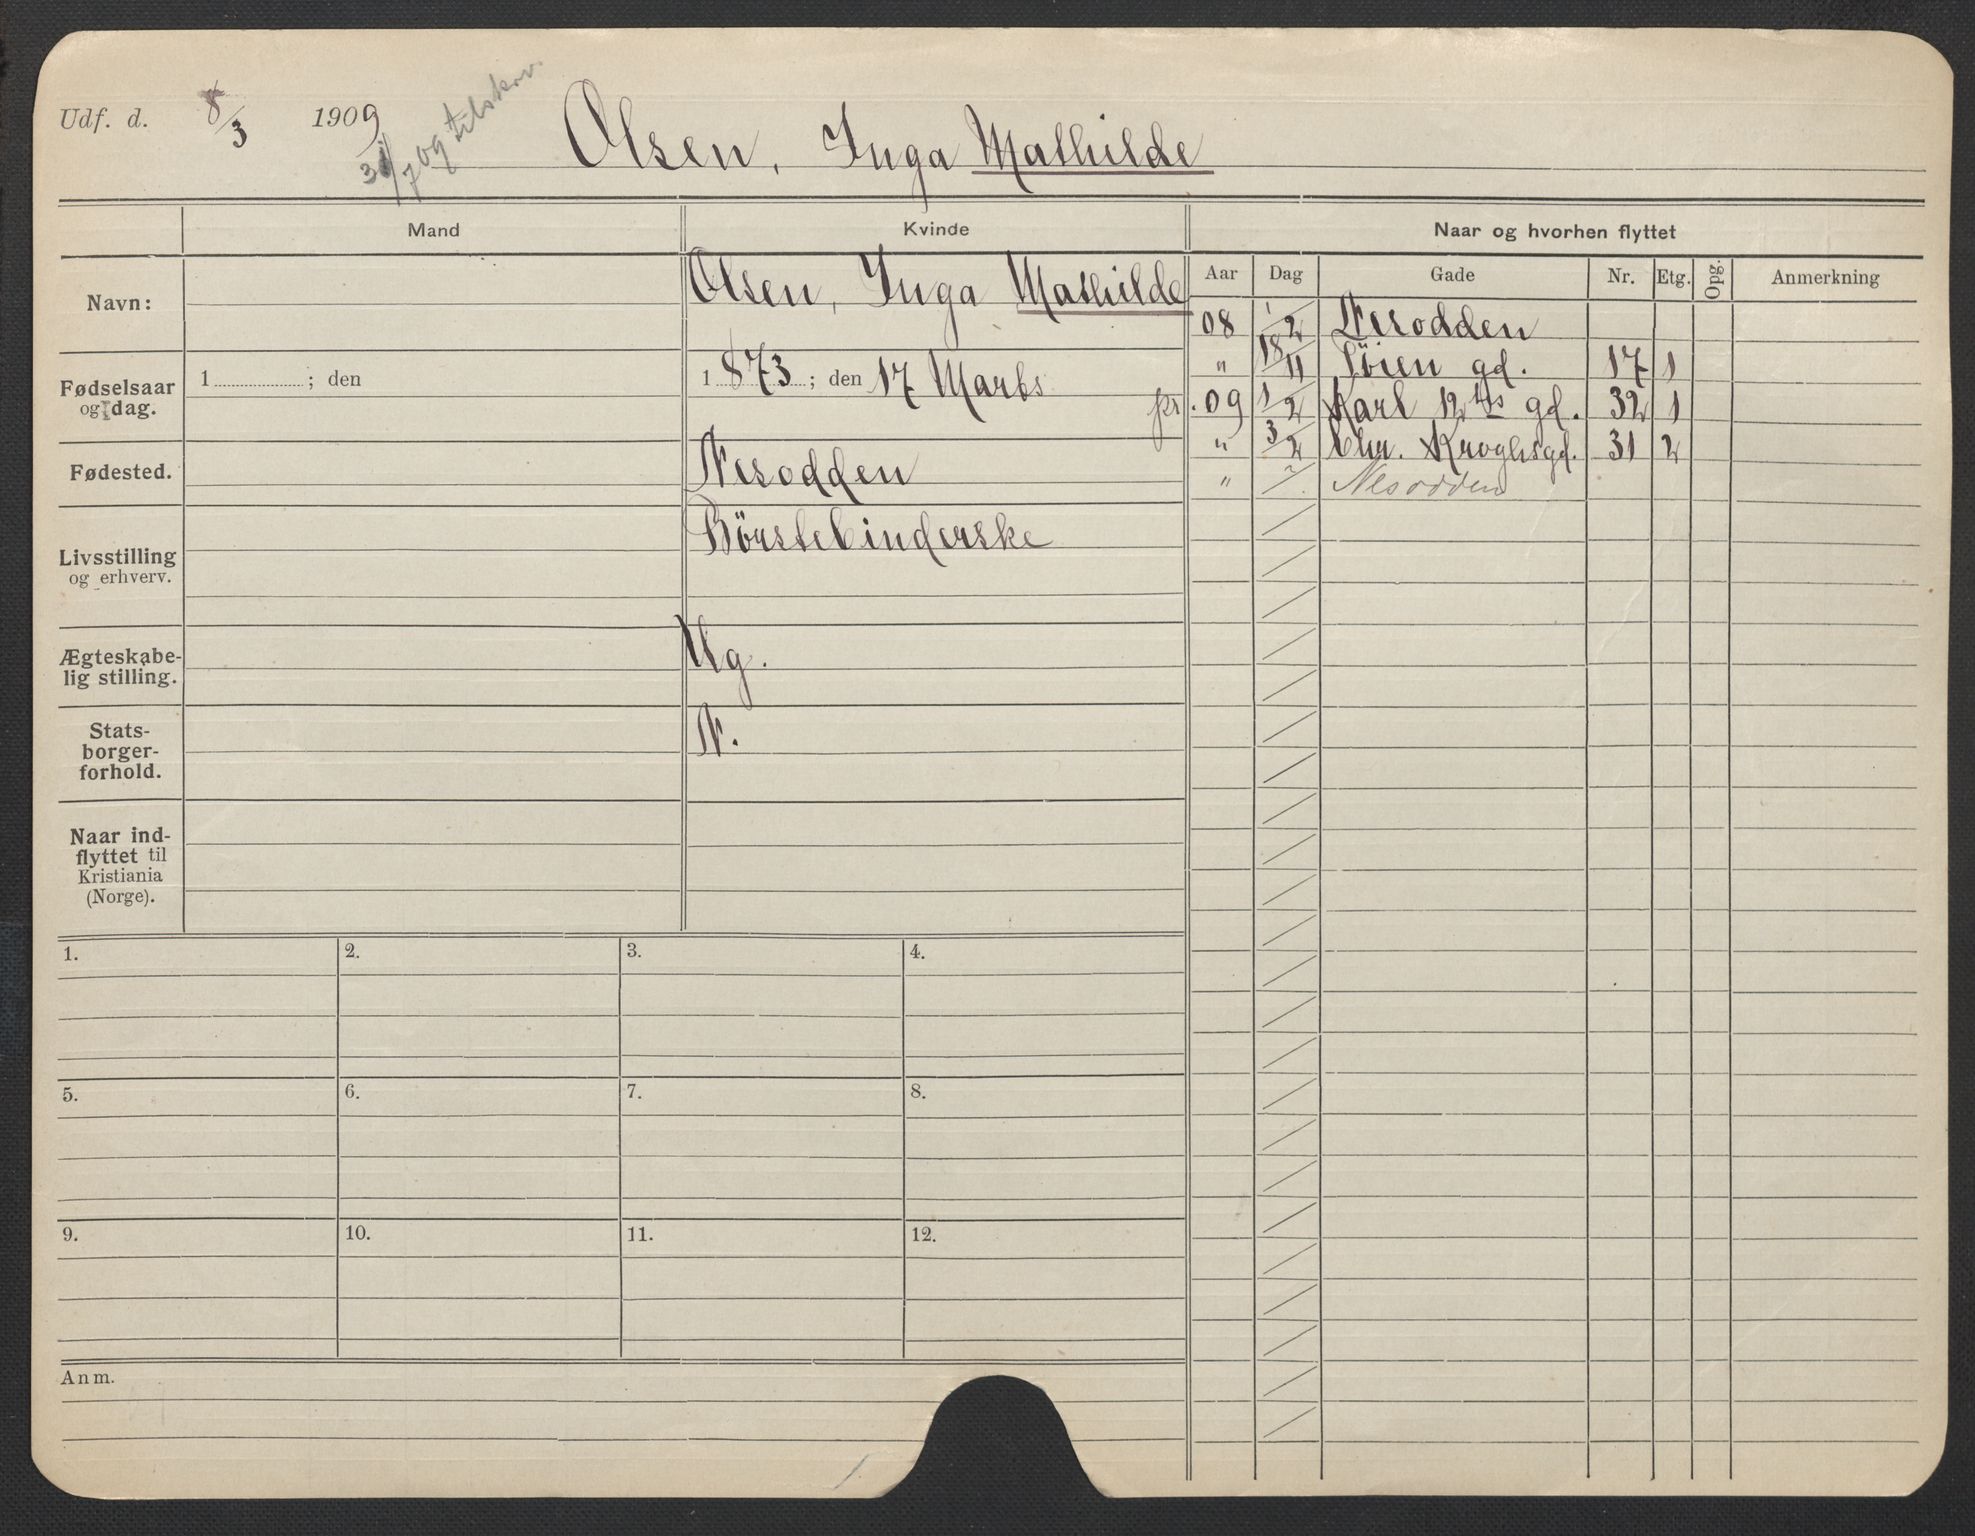 Udf. d. 8/3 1909
31/7 09 tilskrv.
Olsen, Inga Mathilde
Mand
Kvinde
Naar og hvorhen flyttet
Navn:
Olsen, Inga Mathilde
Fødselsaar
og dag.
1 ; den
1 873 ; den 17 Marts
Fødested.
Nesodden
Livsstilling
og erhverv.
Børstebinderske
Ægteskabe-
lig stilling.
Ug.
Stats-
borger-
forhold.
N.
Naar ind-
flyttet til
Kristiania
(Norge).
Aar Dag Gade Nr. Etg. Opg. Anmerkning
08 1/2 Nesodden
" 18/11 Tøien gd. 17 1
pr. 09 1/2 Karl 12tes gd. 32 1
" 3/2 Chr. Kroghsgd. 31 2
" ? Nesodden
1. 2. 3. 4.
5. 6. 7. 8.
9. 10. 11. 12.
Anm.